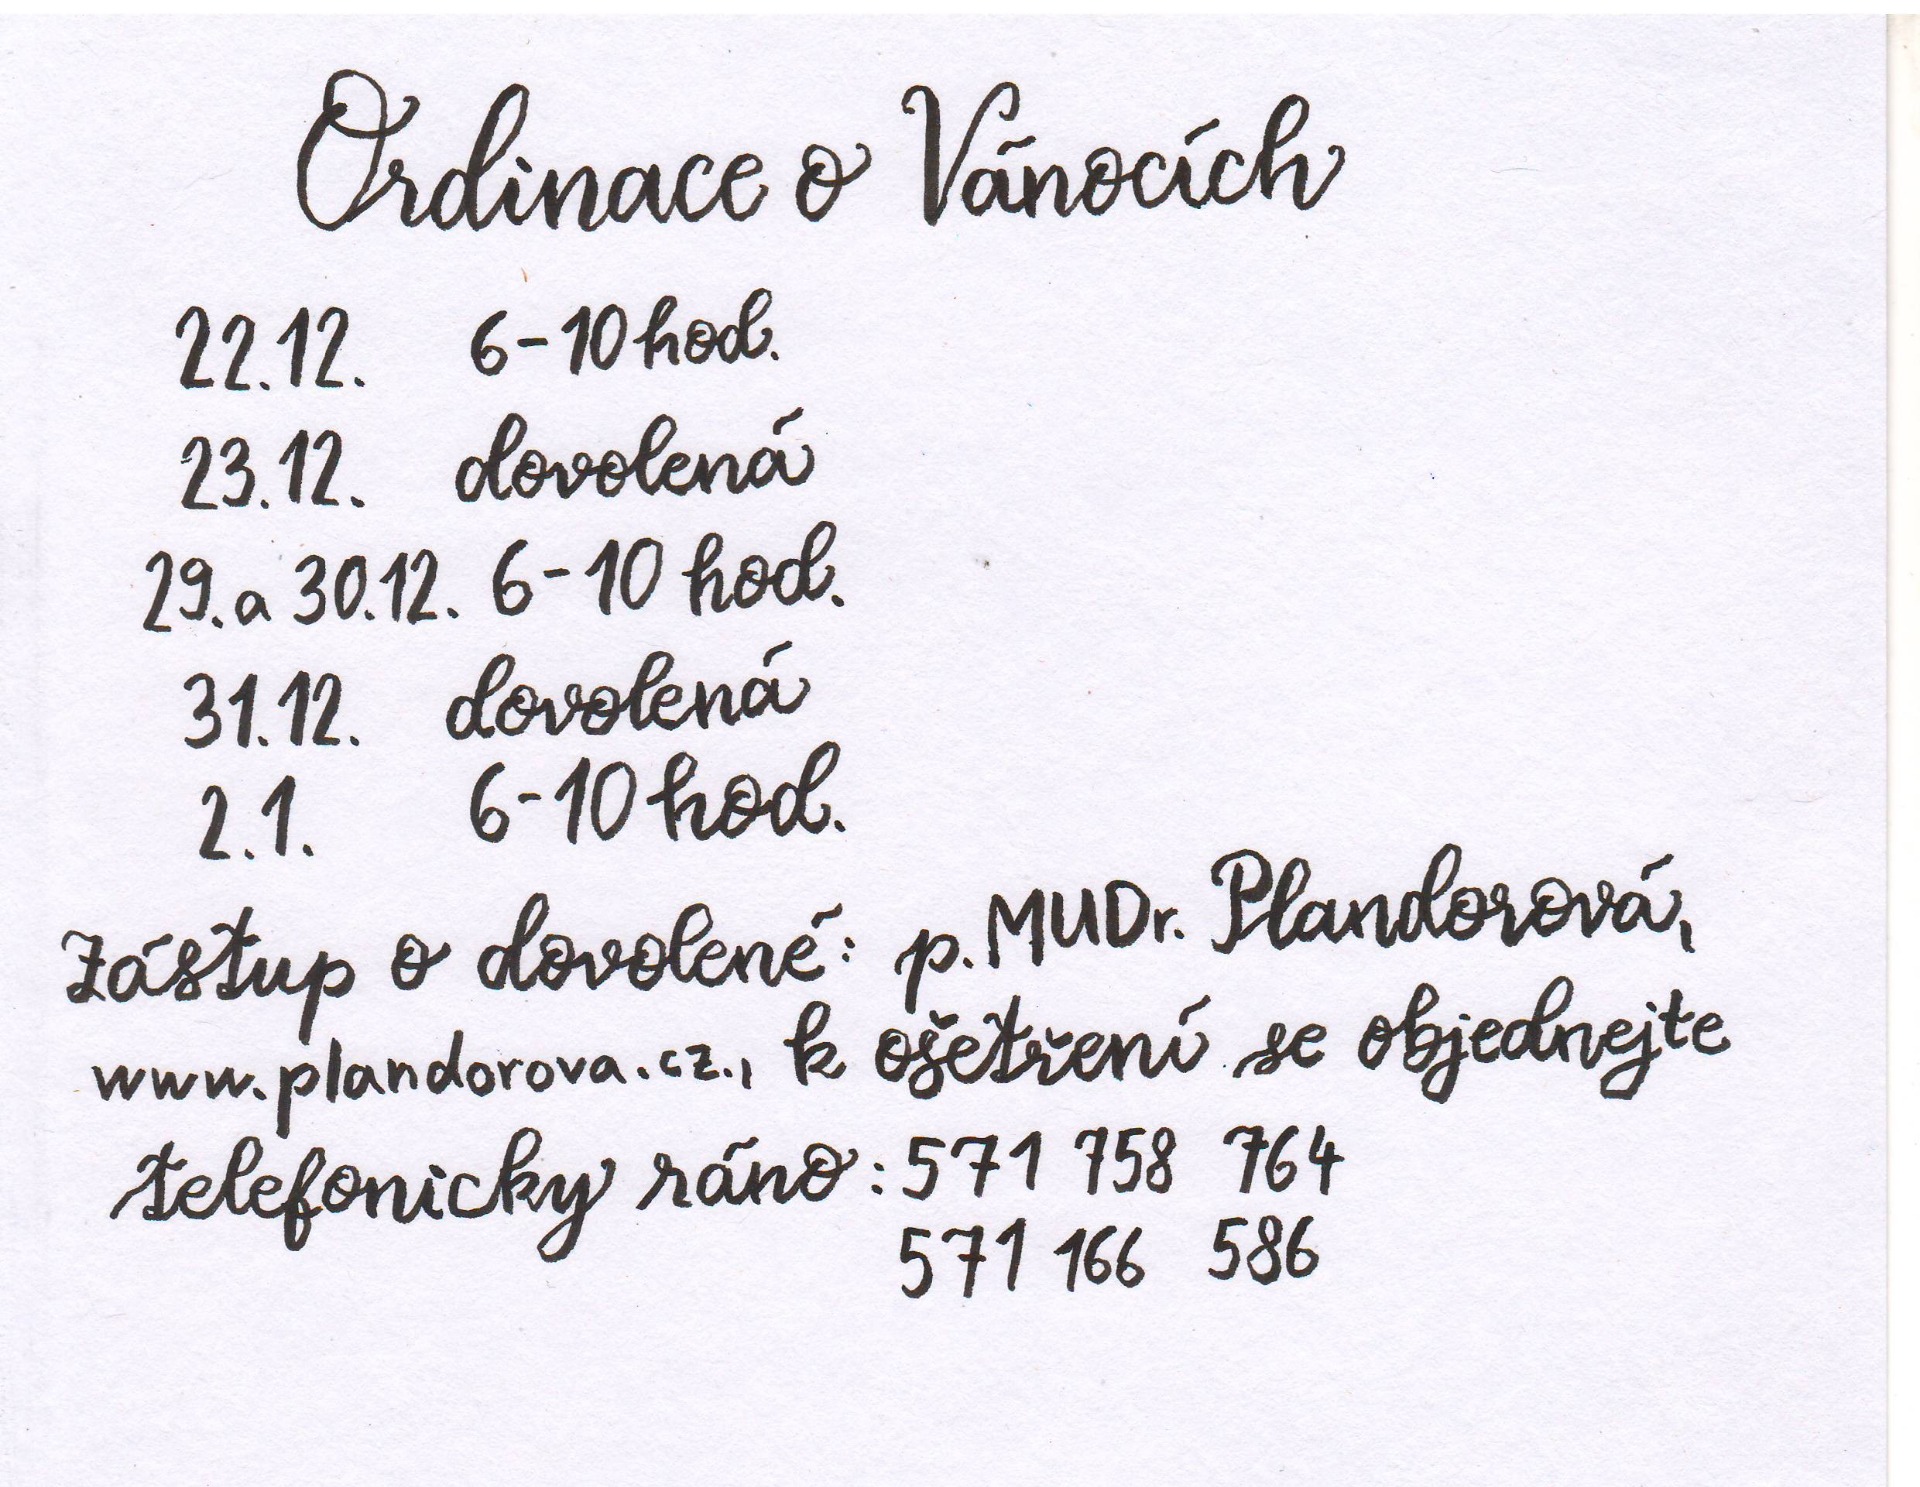 Ordinace o Vánocích
22.12. 6-10 hod.
23.12. dovolená
29. a 30.12. 6-10 hod.
31.12. dovolená
2.1. 6-10 hod.
Zástup o dovolené: p. MUDr. Plandorová,
www.plandorova.cz., k ošetření se objednejte
telefonicky ráno: 571 758 764
571 166 586